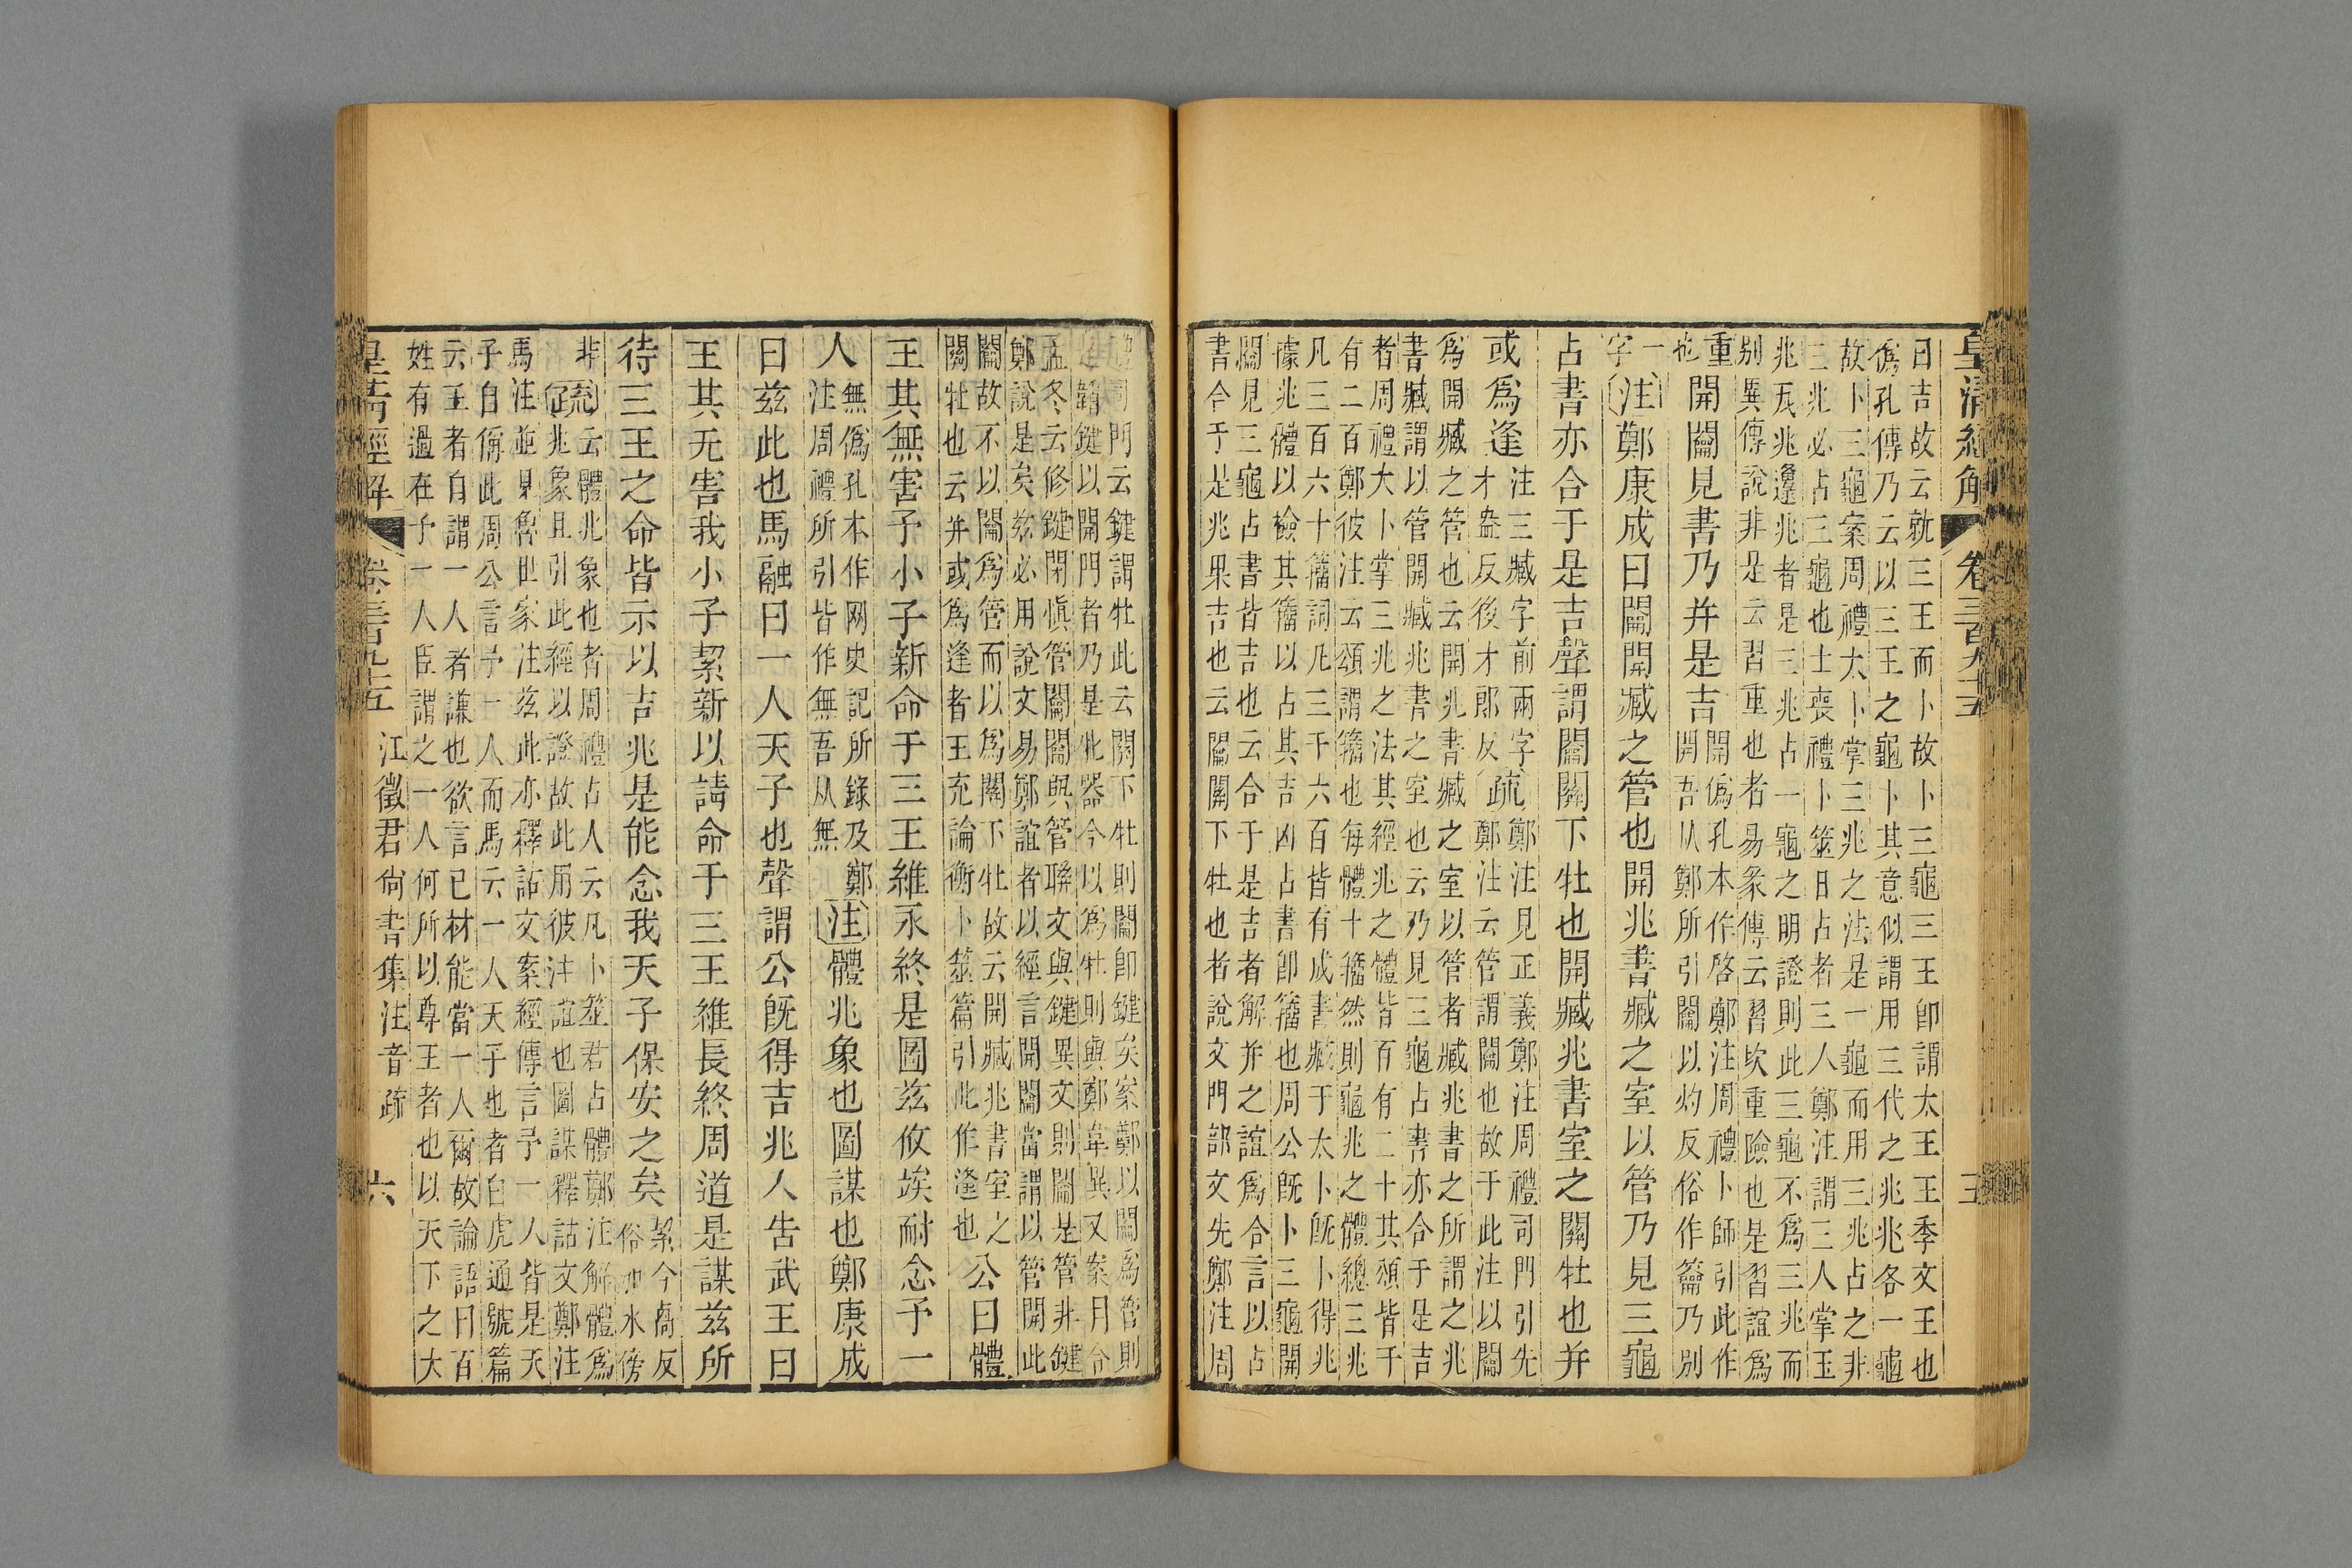 皇清經解 卷三百九十五 五
曰吉故云就三王而卜故卜三龜三王卽謂太王王季文王也
僞孔傳乃云以三王之龜卜其意似謂用三代之兆兆各一龜
故卜三龜案周禮太卜掌三兆之法是一龜而用三兆占之非
三兆必占三龜也士喪禮卜筮日占者三人鄭注謂三人掌玉
兆瓦兆邍兆者是三兆占一龜之明證則此三龜不爲三兆而
别異傳說非是云習重也者易彖傳云習坎重險也是習誼爲
重也
開闔見書乃并是吉
開僞孔本作啓鄭注周禮卜師引此作
開吾从鄭所引闔以灼反俗作籥乃别
一字
注鄭康成曰闔開臧之管也開兆書臧之室以管乃見三龜
占書亦合于是吉聲謂闔關下牡也開臧兆書室之關牡也并
或爲逢
注三臧字前兩字
才盎反後才郎反
疏
鄭注見正義鄭注周禮司門引先
鄭注云管謂闔也故于此注以闔
爲開臧之管也云開兆書臧之室以管者臧兆書之所謂之兆
書臧謂以管開臧兆書之室也云乃見三龜占書亦合于是吉
者周禮大卜掌三兆之法其經兆之體皆百有二十其頌皆千
有二百鄭彼注云頌謂籀也每體十籀然則龜兆之體總三兆
凡三百六十籀詞凡三千六百皆有成書臧于太卜旣卜得兆
據兆體以檢其籀以占其吉凶占書卽籀也周公旣卜三龜開
闔見三龜占書皆吉也云合于是吉者解并之誼爲合言以占
書合于是兆果吉也云闔關下牡也者說文門部文先鄭注周
司門云鍵謂牡此云關下牡則闔卽鍵矣案鄭以闔爲管則
鍵以開門者乃是牝器今以爲牡則與鄭韋異又案月令
孟冬云修鍵閉愼管闔闔與管聯文與鍵異文則闔是管非鍵
鄭說是矣兹必用說文易鄭誼者以經言開闔當謂以管開此
闔故不以闔爲管而以爲關下牡故云開臧兆書室之
關牡也云并或爲逢者王充論衡卜筮篇引此作逢也
公曰體
王其無害予小子新命于三王維永終是圖兹攸竢耐念予一
人
無僞孔本作网史記所錄及鄭
注周禮所引皆作無吾从無
注體兆象也圖謀也鄭康成
曰兹此也馬融曰一人天子也聲謂公旣得吉兆人告武王曰
王其无害我小子絜新以請命于三王維長終周道是謀兹所
待三王之命皆示以吉兆是能念我天子保安之矣
絜今喬反
俗加水傍
非
疏
云體兆象也者周禮占人云凡卜筮君占體鄭注解體爲
兆象且引此經以證故此用彼注誼也圖謀釋詁文鄭注
馬注並見魯世家注兹此亦釋詁文案經傳言予一人皆是天
子自偁此周公言予一人而馬云一人天子也者白虎通號篇
云王者自謂一人者謙也欲言己材能當一人爾故論語曰百
姓有過在予一人臣謂之一人何所以尊王者也以天下之大
皇清經解 卷三百九十五 江徵君尙書集注音疏 六